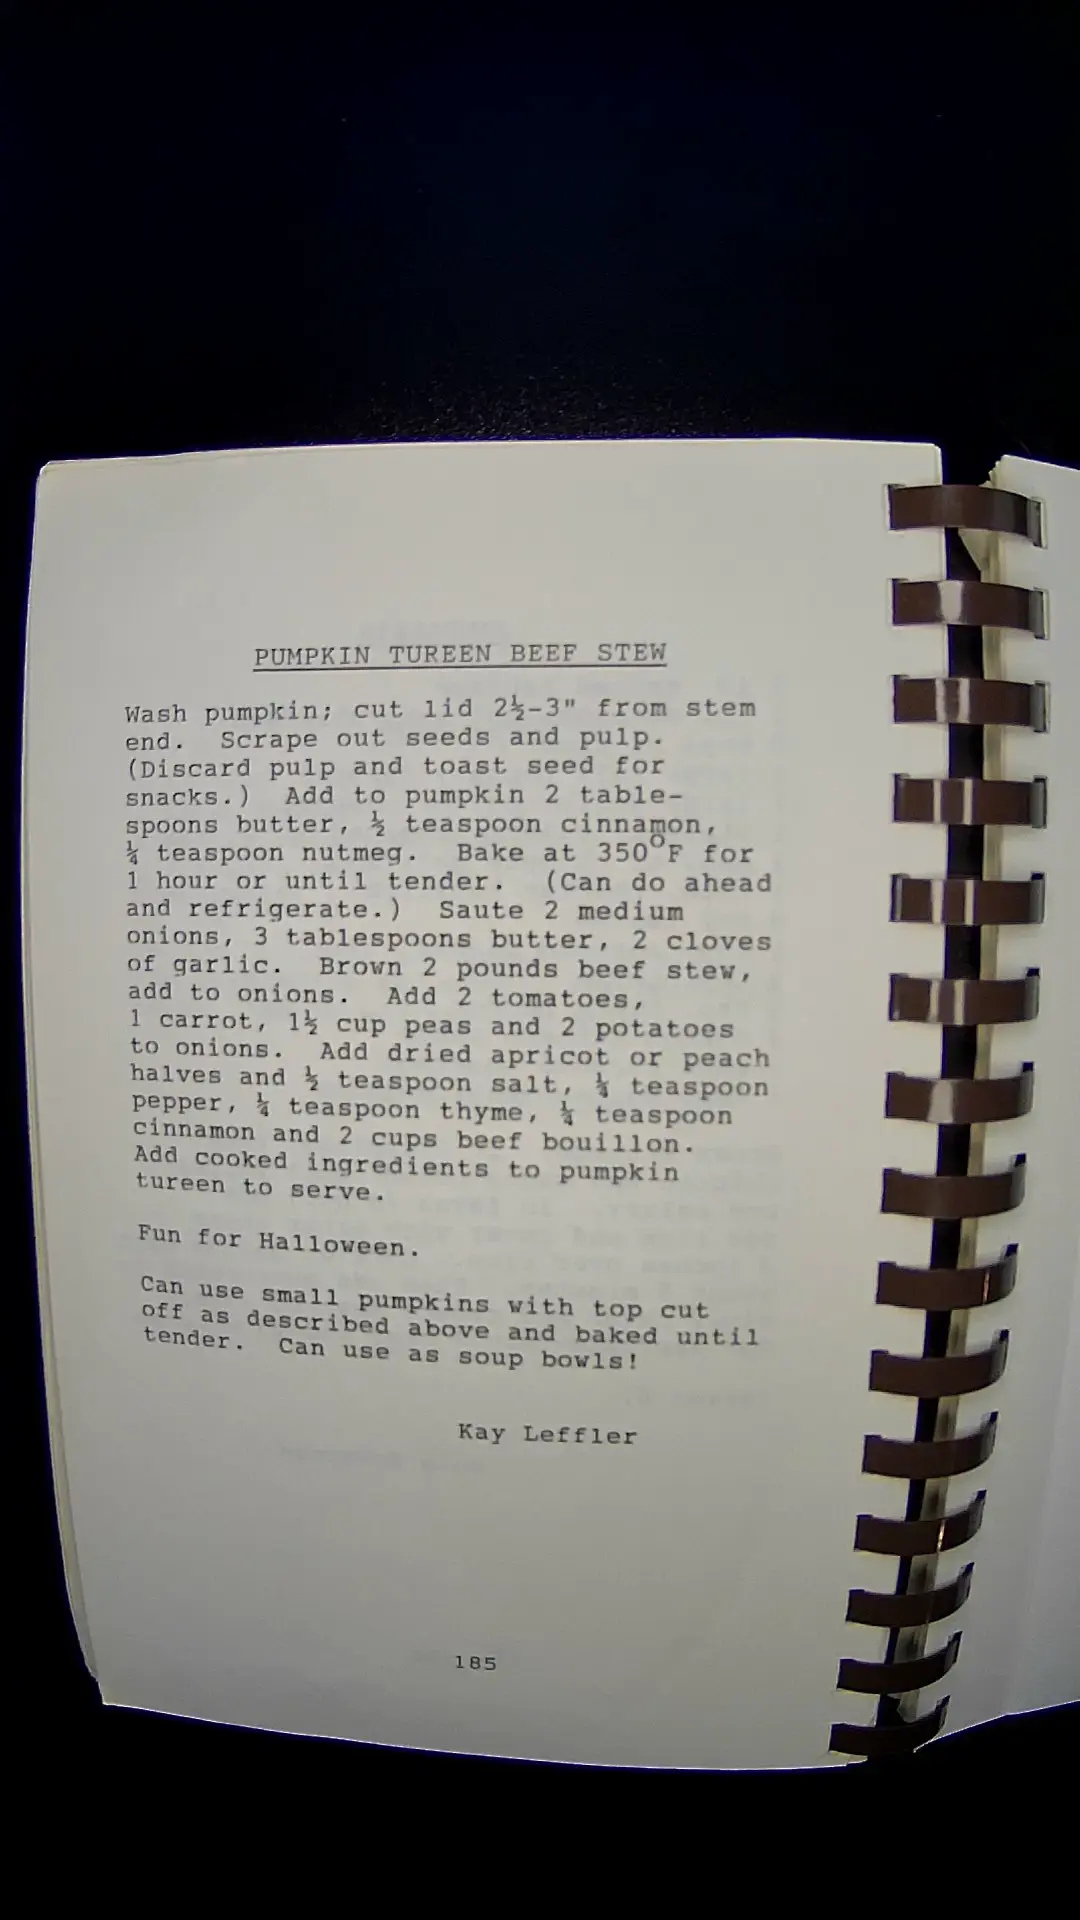 PUMPKIN TUREEN BEEF STEW
Wash pumpkin; cut lid 2½-3" from stem
end. Scrape out seeds and pulp.
(Discard pulp and toast seed for
snacks.) Add to pumpkin 2 table-
spoons butter, ½ teaspoon cinnamon,
¼ teaspoon nutmeg. Bake at 350°F for
1 hour or until tender. (Can do ahead
and refrigerate.) Saute 2 medium
onions, 3 tablespoons butter, 2 cloves
of garlic. Brown 2 pounds beef stew,
add to onions. Add 2 tomatoes,
1 carrot, 1½ cup peas and 2 potatoes
to onions. Add dried apricot or peach
halves and ½ teaspoon salt, ¼ teaspoon
pepper, ¼ teaspoon thyme, ¼ teaspoon
cinnamon and 2 cups beef bouillon.
Add cooked ingredients to pumpkin
tureen to serve.
Fun for Halloween.
Can use small pumpkins with top cut
off as described above and baked until
tender. Can use as soup bowls!
Kay Leffler
185